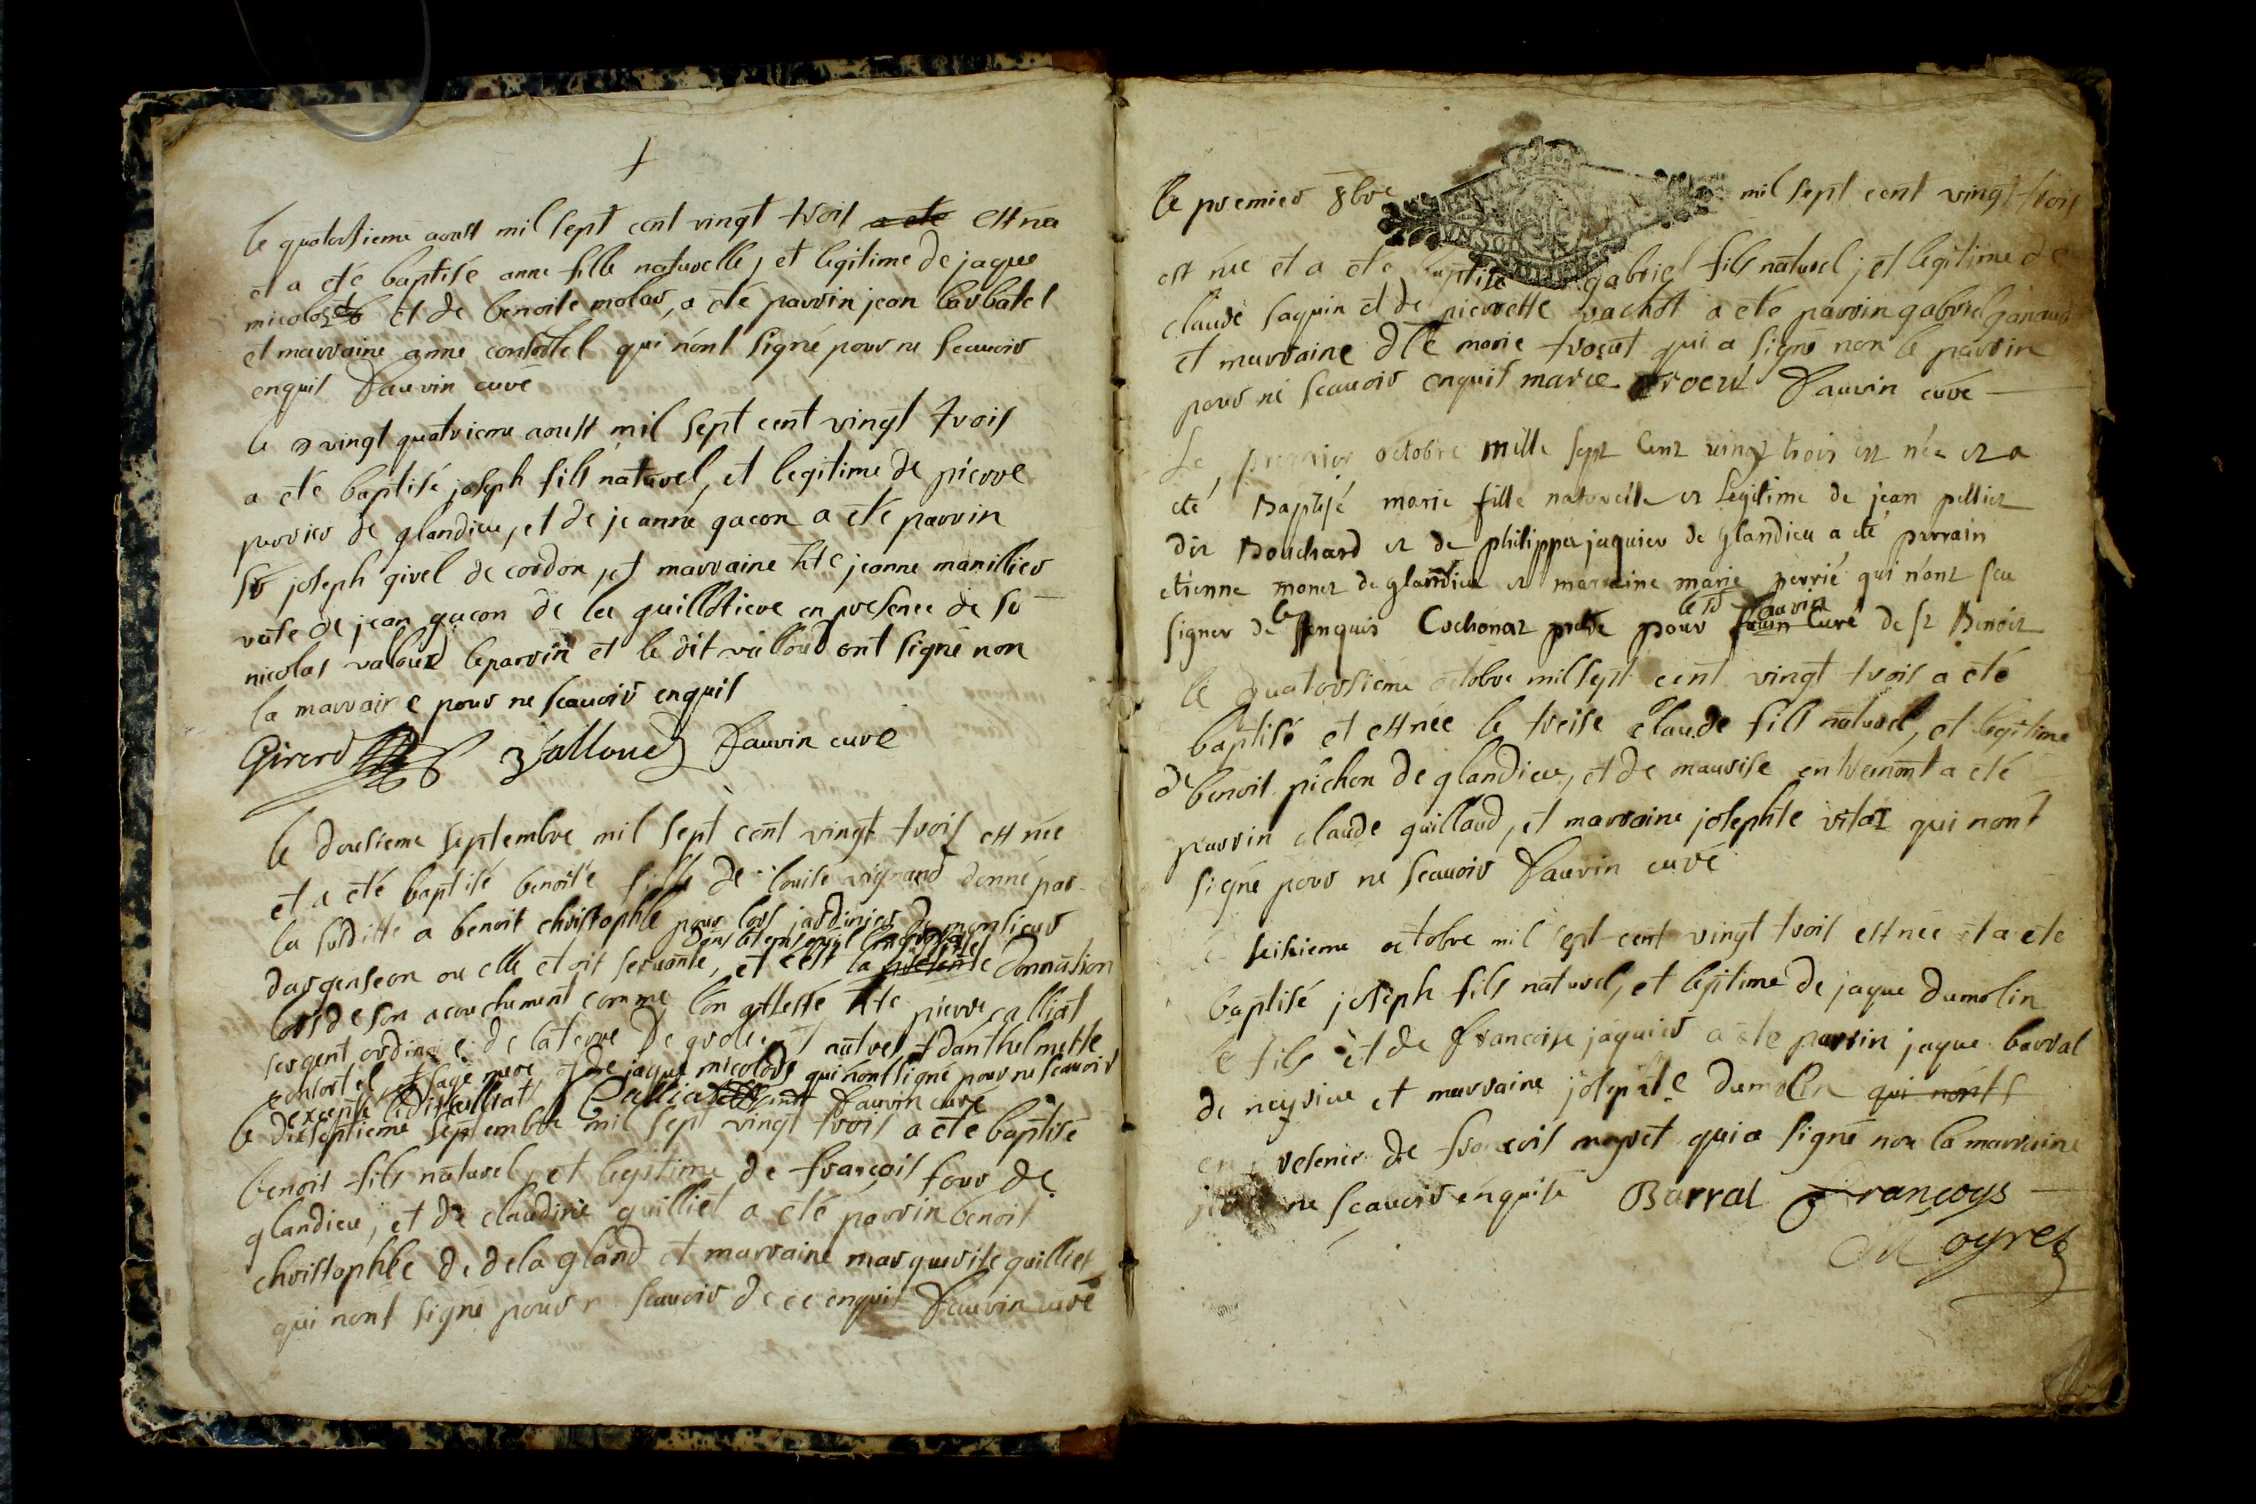 le quatorsieme aoust mil sept cent vingt trois a eté est née
et a eté baptisé anne fille naturelle, et legitime de jaque
et de benoite molar, a eté parrin jean barbatel
et marraine anne qui n'ont signé pour ne scauoir
enquis Dauvin curé
le vingt quatrieme aoust mil sept cent vingt trois
a eté baptisé joseph fils naturel, et legitime de pierre
perrier de glandieu, et de jeanne gacon a eté parrin
sr joseph givel de cordon, et marraine hte jeanne manillier
de jean gacon de la guillotiere en presence de sr
nicolas valoud le parrin et le dit valloud ont signé non
la marraine pour ne scauoir enquis
Girerd Valloud Dauvin curé
le dousieme septembre mil sept cent vingt trois est née
et a eté baptisé benoite fille de louise donné par
la susditte a benoit christophle pour lors jardinier de monsieur
dargenseon ou elle etoit seruante, et c'est la presente donnation
lors de son acouchement comme l'on attesté hte pierre calliat
sergent ordinaire de la terre de et autres danthelmette
sage mere et de jaque qui n'ont signé pour ne scauoir
excepté ledit calliat Calliat Dauvin curé
le dixseptieme septembre mil sept vingt trois a eté baptisé
benoit fils naturel, et legitime de françois four de
glandieu, et de claudine guilliet a eté parrin benoit
christophle de dela gland et marraine marguerite guilliet
qui n'ont signé pour scauoir de ce enquis Dauvin curé
le premier 8bre mil sept cent vingt trois
est née et a eté baptisé gabriel fils naturel, et legitime de
claude saquin et de pierrette vachot a eté parrin gabriel ganaud
et marraine dlle marie trocut qui a signé non le parrin
pour ne scauoir enquis marie trocut Dauvin curé
Le premier octobre mille sept cent vingt trois est née et a
eté Baptisé marie fille naturelle et legitime de jean pellier
dit Bouchard et de philippa jaquier de glandieu a eté parrain
etienne monet de glandieu et marraine marie perrié qui n'ont sceu
signer de ce enquis Cochonat pretre pour le sr Dauvin curé de st Benoit
le quatorsieme octobre mil sept cent vingt trois a eté
baptisé et est née le treise claude fils naturel, et legitime
de benoit pichon de glandieu, et de maurise entremont a eté
parrin claude guillaud, et marraine josephte vitoz qui n'ont
signé pour ne scauoir Dauvin curé
le seisieme octobre mil sept cent vingt trois est née et a eté
baptisé joseph fils naturel, et legitime de jaque dumolin
le fils et de francoise jaquier a eté parrin jaque barral
de neyrieu et marraine josephte dumolin qui n'ont
en de francois moyret qui a signé non la marraine
ne scauoir enquise Barral Francoys
Moyret